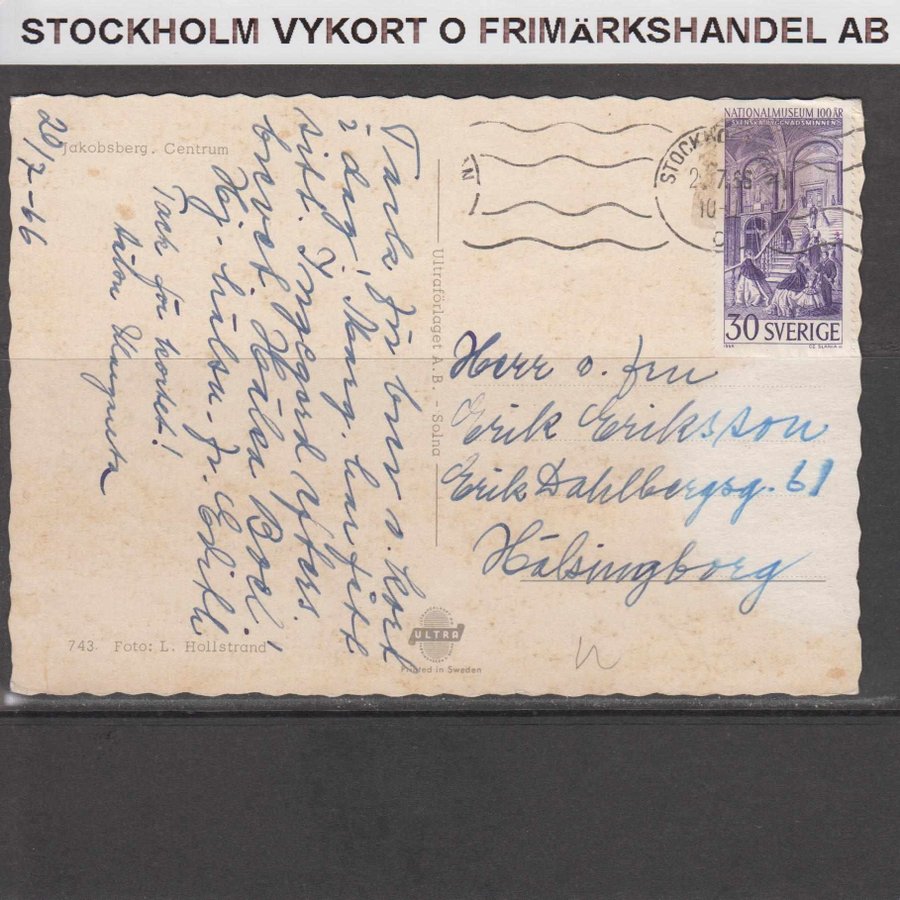 STOCKHOLM VYKORT O FRIMÄRKSHANDEL AB
Jakobsberg. Centrum
20/7-66
Tack för brev o. kort
i dag! Marg. har fått
sitt. Ingegärd
brevet. Hälsa
Hj. hälsn. fr. Edith
Tack för kortet!
Anton
743. Foto: L. Hollstrand
Ultraförlaget A.B. - Solna
ULTRA
Printed in Sweden
STOCKHO
10
NATIONALMUSEUM 100 ÅR
SVENSKA BYGGNADSMINNEN
30 SVERIGE
1966 CZ. SLANIA
Herr o. fru
Erik Eriksson
Erik Dahlbergsg. 61
Hälsingborg